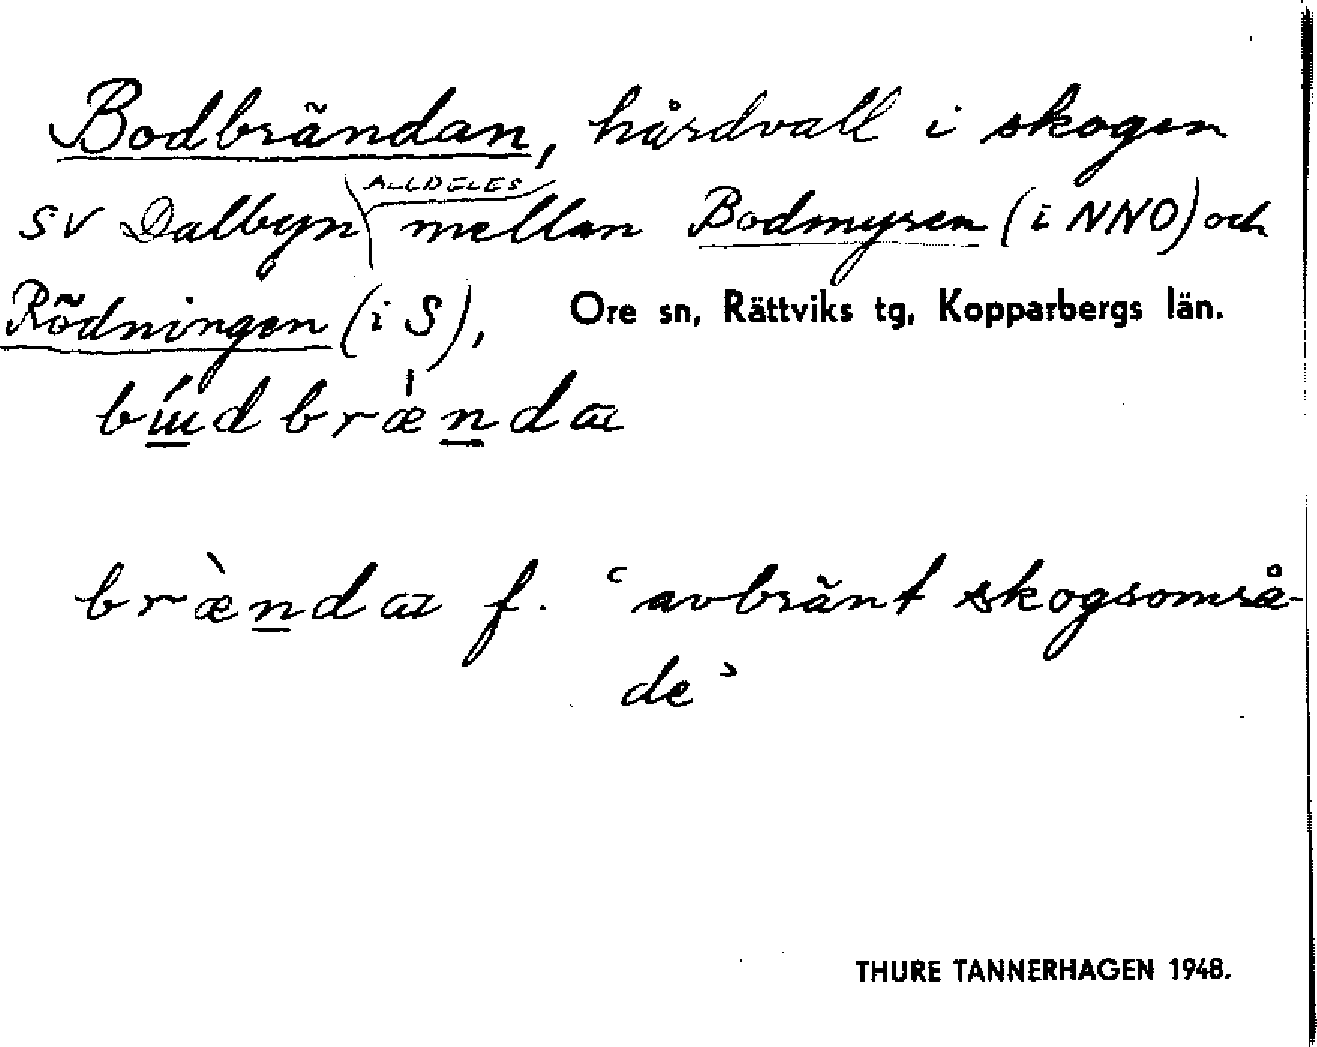 Bodbrändan, hårdvall i skogen
SV Dalbyn ALLDELES mellan Bodmyren (i NNO) och
Rödningen (i S), Ore sn, Rättviks tg, Kopparbergs län.
brända f. ‘avbränt skogsområ-
de’
THURE TANNERHAGEN 1948.